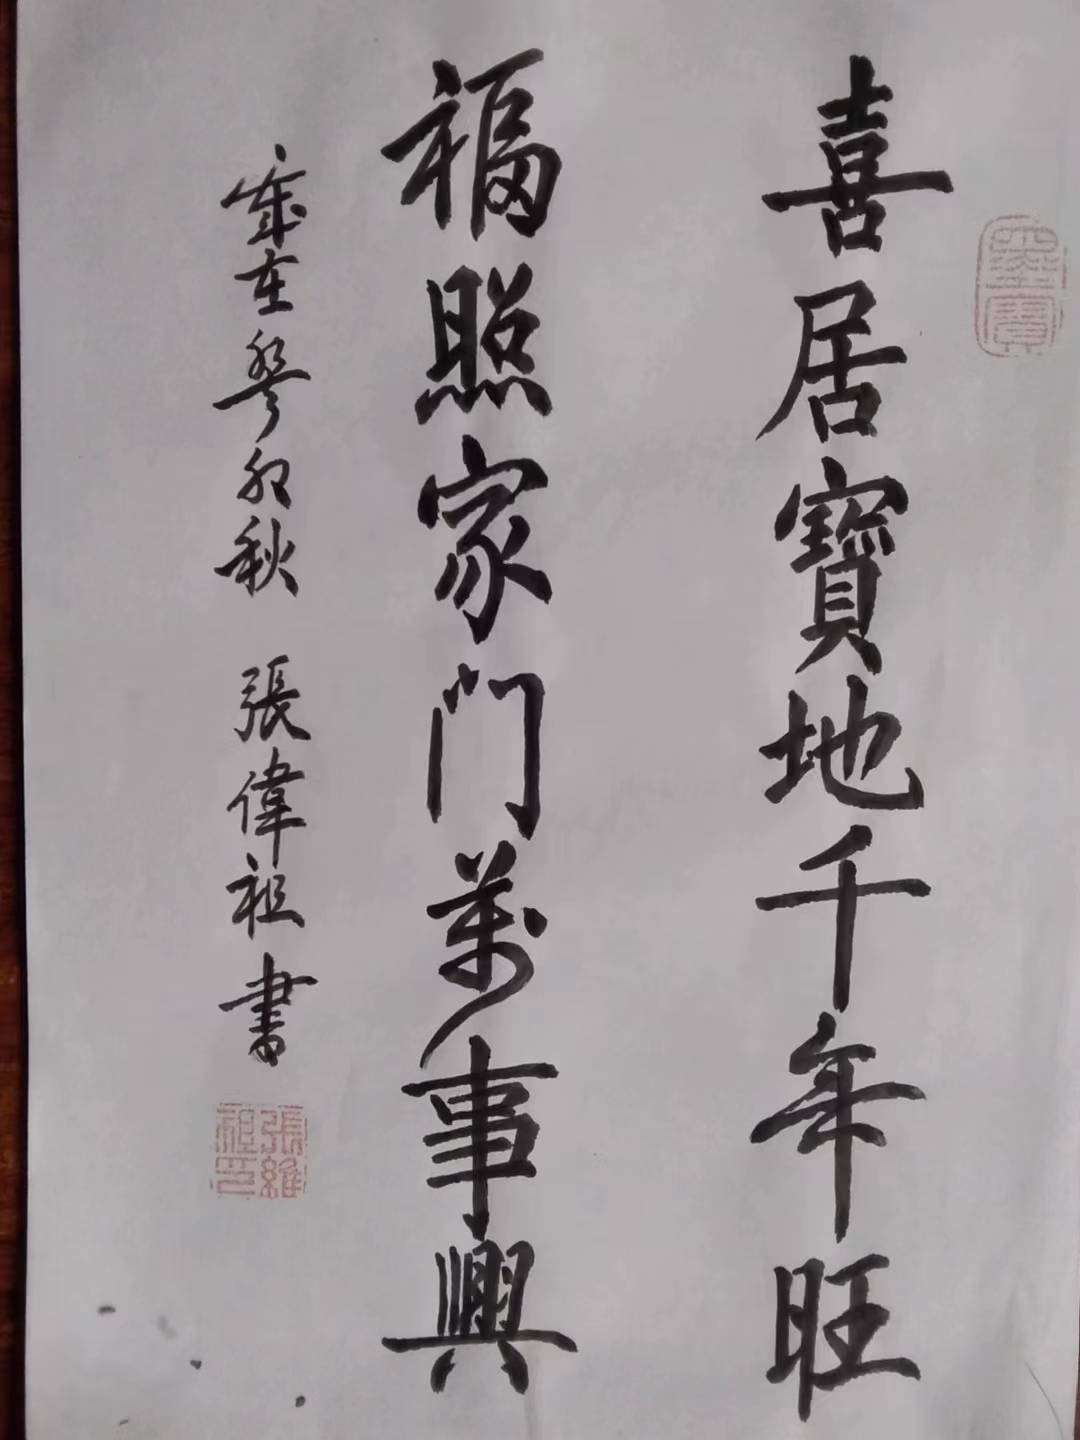 喜居寶地千年旺
福照家门萬事興
歲在癸卯秋 張偉祖書
墨寶
張維祖印